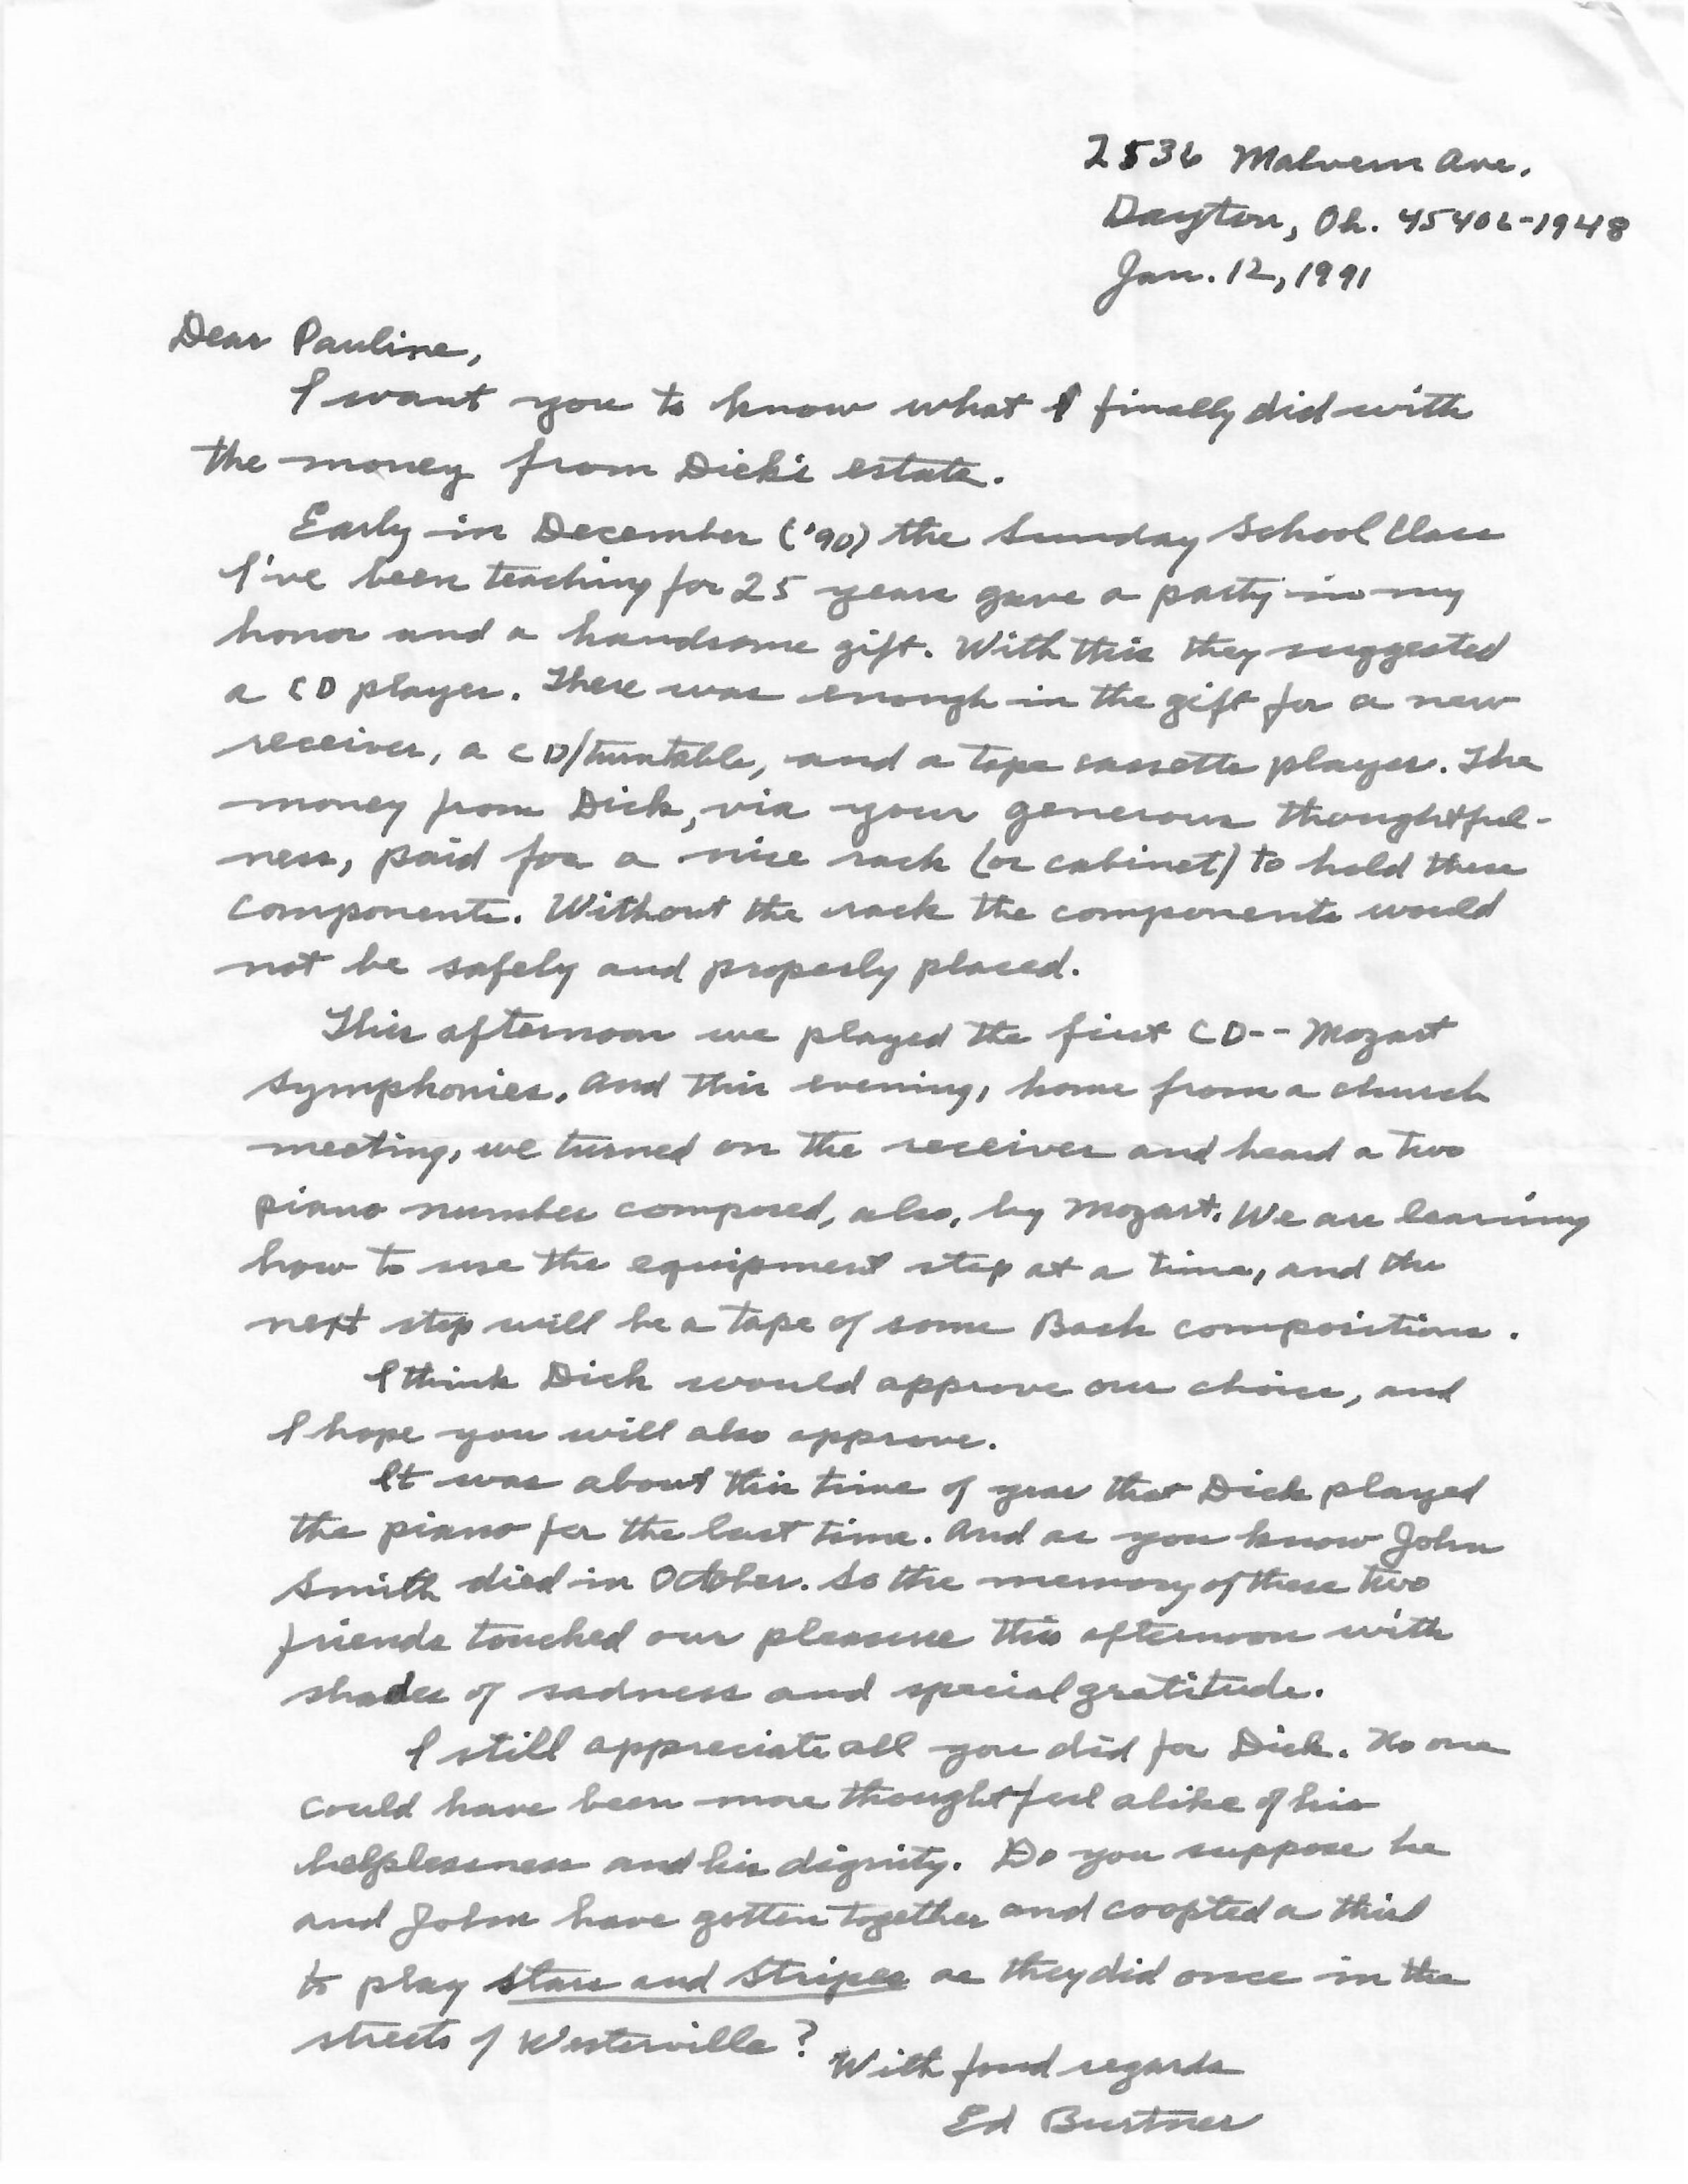 2536 Malvern Ave.
Dayton, Oh. 45406-1948
Jan. 12, 1991
Dear Pauline,
I want you to know what I finally did with
the money from Dick's estate.
Early in December ('90) the Sunday School Class
I've been teaching for 25 years gave a party in my
honor and a handsome gift. With this they suggested
a CD player. There was enough in the gift for a new
receiver, a CD/turntable, and a tape cassette player. The
money from Dick, via your generous thoughtful-
ness, paid for a nice rack (or cabinet) to hold these
components. Without the rack the components would
not be safely and properly placed.
This afternoon we played the first CD-- Mozart
symphonies. And this evening, home from a church
meeting, we turned on the receiver and heard a two
piano number composed, also, by Mozart. We are learning
how to use the equipment step at a time, and the
next step will be a tape of some Bach compositions.
I think Dick would approve our choice, and
I hope you will also approve.
It was about this time of year that Dick played
the piano for the last time. And as you know John
Smith died in October. So the memory of these two
friends touched our pleasure this afternoon with
shades of sadness and special gratitude.
I still appreciate all you did for Dick. No one
could have been more thoughtful alike of his
helplessness and his dignity. Do you suppose he
and John have gotten together and coopted a third
to play Stars and Stripes as they did once in the
streets of Westerville?
With fond regards
Ed Burtner